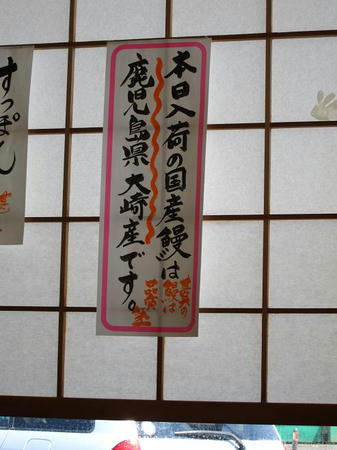 本日入荷の国産鰻は
鹿児島県 大崎産です。
の鰻は
すっぽん